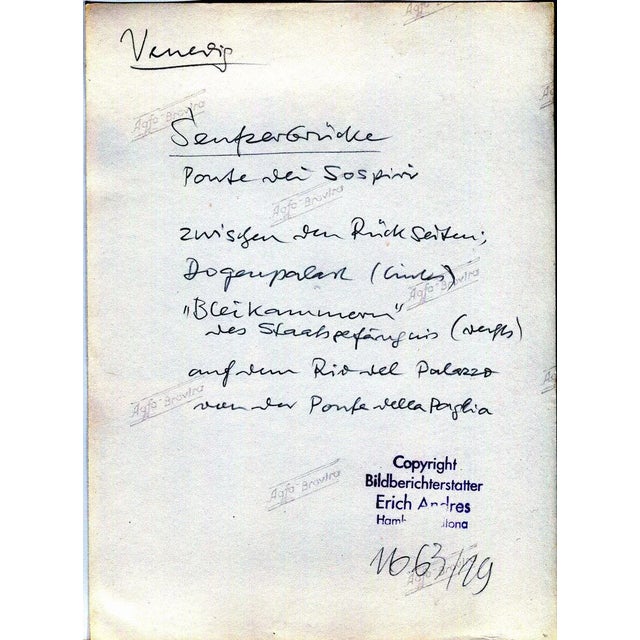 Venedig
Seufzerbrücke
Ponte dei Sospiri
zwischen den Rückseiten;
Dogenpalast (links)
"Bleikammern"
des Staatsgefängnis (rechts)
auf dem Rio del Palazzo
von der Ponte della Paglia
Copyright
Bildberichterstatter
Erich Andres
1663/19
Agfa-Brovira
Agfa-Brovira
Agfa-Brovira
Agfa-Brovira
Agfa-Brovira